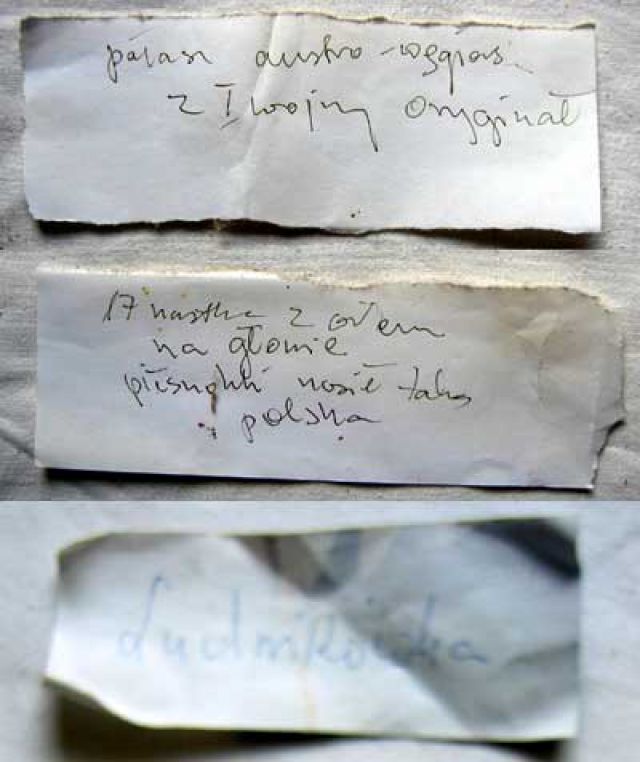 pałasz austro-węgies.
z I wojny oryginał
17 nastka z orłem
na głowie
piłsudski nosił taką
polska
Ludwikówka